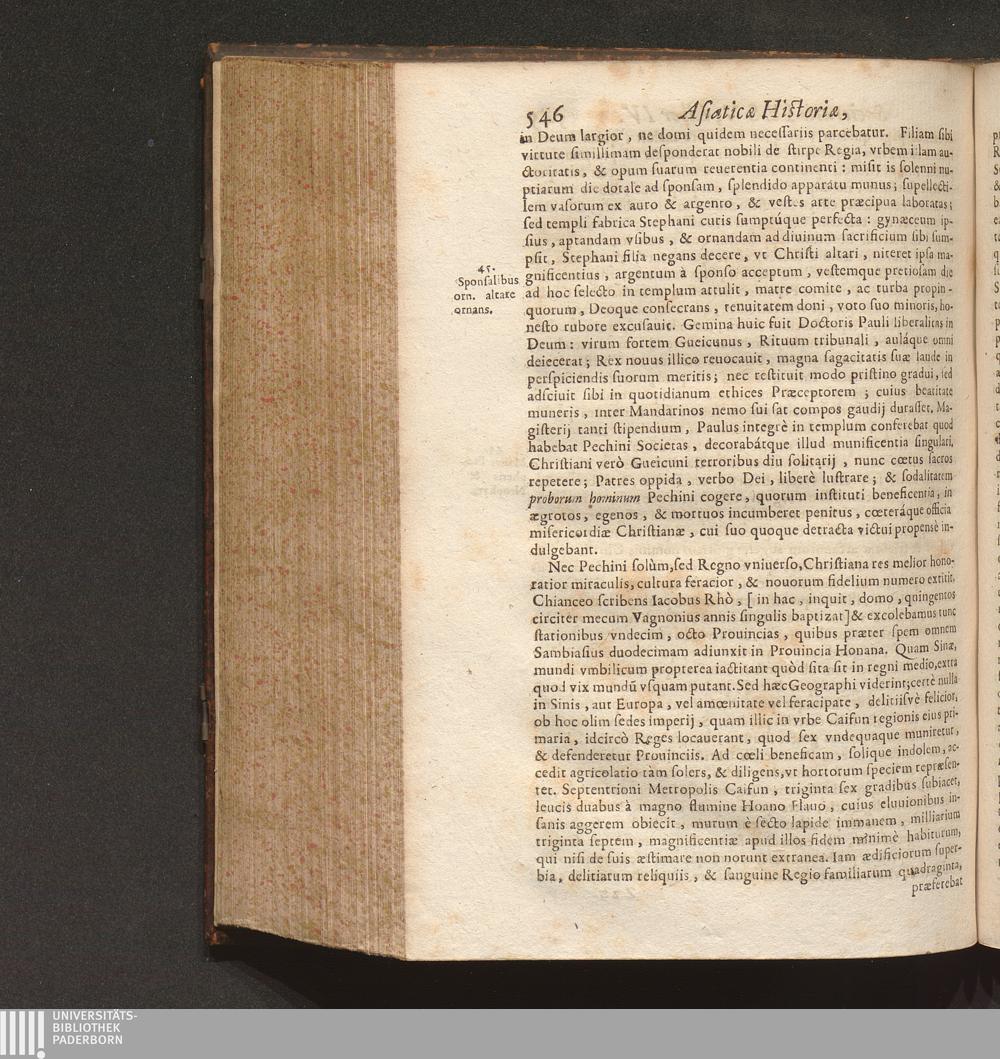 546 Asiaticæ Historiæ,
in Deum largior, ne domi quidem necessariis parcebatur. Filiam sibi
virtute simillimam desponderat nobili de stirpe Regia, vrbem illam au-
ctoritatis, & opum suarum reuerentia continenti: misit is solenni nu-
ptiarum die dotale ad sponsam, splendido apparatu munus; supellecti-
lem vasorum ex auro & argento, & vestes arte præcipua laboratas;
sed templi fabrica Stephani curis sumptúque perfecta: gynæceum ip-
sius, aptandam vsibus, & ornandam ad diuinum sacrificium sibi sum-
psit, Stephani filia negans decere, vt Christi altari, niteret ipsa ma-
45.
Sponsalibus
orn. altare
ornans.
gnificentius, argentum à sponso acceptum, vestemque pretiosam die
ad hoc selecto in templum attulit, matre comite, ac turba propin-
quorum, Deoque consecrans, tenuitatem doni, voto suo minoris, ho-
nesto rubore excusauit. Gemina huic fuit Doctoris Pauli liberalitas in
Deum: virum fortem Gueicunus, Rituum tribunali, auláque omni
deiecerat; Rex nouus illico reuocauit, magna sagacitatis suæ laude in
perspiciendis suorum meritis; nec restituit modo pristino gradui, sed
adsciuit sibi in quotidianum ethices Præceptorem; cuius beatitate
muneris, inter Mandarinos nemo sui sat compos gaudij durasset. Ma-
gisterij tanti stipendium, Paulus integrè in templum conferebat quod
habebat Pechini Societas, decorabátque illud munificentia singulari.
Christiani verò Gueicuni terroribus diu solitarij, nunc cœtus sacros
repetere; Patres oppida, verbo Dei, liberè lustrare; & sodalitatem
proborum hominum Pechini cogere, quorum instituti beneficentia, in
ægrotos, egenos, & mortuos incumberet penitus, cœteráque officia
misericordiæ Christianæ, cui suo quoque detracta victui propensè in-
dulgebant.
Nec Pechini solùm, sed Regno vniuerso, Christiana res melior hono-
ratior miraculis, cultura feracior, & nouorum fidelium numero extitit,
Chianceo scribens Iacobus Rhò, [in hac, inquit, domo, quingentos
circiter mecum Vagnonius annis singulis baptizat] & excolebamus tunc
stationibus vndecim, octo Prouincias, quibus præter spem omnem
Sambiasius duodecimam adiunxit in Prouincia Honana. Quam Sinæ,
mundi vmbilicum propterea iactitant quòd sita sit in regni medio, extra
quod vix mundũ vsquam putant. Sed hæc Geographi viderint; certè nulla
in Sinis, aut Europa, vel amœnitate vel feracipate, delitiisvè felicior,
ob hoc olim sedes imperij, quam illic in vrbe Caifun regionis eius pri-
maria, idcircò Reges locauerant, quod sex vndequaque muniretur,
& defenderetur Prouinciis. Ad cœli beneficam, solique indolem, ac-
cedit agricolatio tàm solers, & diligens, vt hortorum speciem repræsen-
tet. Septentrioni Metropolis Caifun, triginta sex gradibus subiacet,
leucis duabus à magno flumine Hoano Flauo, cuius eluuionibus in-
sanis aggerem obiecit, murum è secto lapide immanem, milliarium
triginta septem, magnificentiæ apud illos fidem minimè habiturum,
qui nisi de suis æstimare non norunt extranea. Iam ædificiorum super-
bia, delitiarum reliquiis, & sanguine Regio familiarum quadraginta,
præferebat
UNIVERSITÄTS-
BIBLIOTHEK
PADERBORN